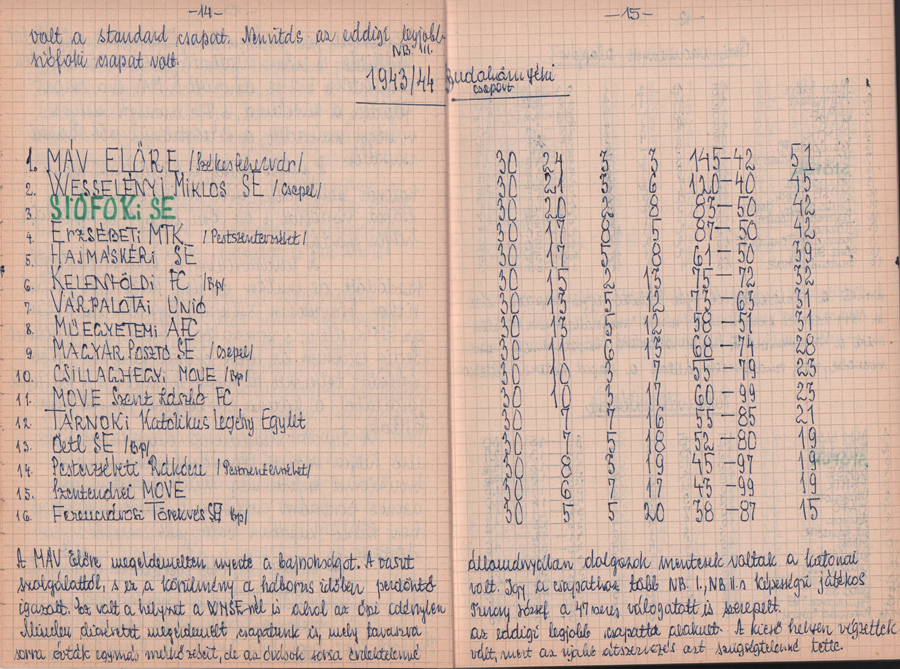 -14-
volt a standard csapat. Nemvitás az eddigi legjobb
siófoki csapat volt.
-15-
NB. III.
1943/44 Budakörnyéki
csoport
1. MÁV ELŐRE /Székesfehérvár/ 30 24 3 3 145-42 51
2. WESSELÉNYI MIKLÓS SE /Csepel/ 30 21 3 6 120-40 45
3. SIÓFOKI SE 30 20 2 8 83-50 42
4. ERZSÉBETI MTK /Pestszenterzsébet/ 30 17 8 5 87-50 42
5. HAJMÁSKÉRI SE 30 17 5 8 61-50 39
6. KELENFÖLDI FC /Bp/ 30 15 2 13 75-72 32
7. VÁRPALOTAI UNIÓ 30 13 5 12 73-63 31
8. MŰEGYETEMI AFC 30 13 5 12 58-51 31
9. MAGYAR POSZTÓ SE /Csepel/ 30 11 6 13 68-74 28
10. CSILLAGHEGYI MOVE /Bp/ 30 10 3 7 55-79 23
11. MOVE Szent László FC 30 10 3 17 60-99 23
12. TÁRNOKI Katolikus Legény Egylet 30 7 7 16 55-85 21
13. Oetl SE /Bp/ 30 7 5 18 52-80 19
14. Pesterzsébeti Rákóczi /Pestszenterzsébet/ 30 8 5 19 45-97 19
15. Szentendrei MOVE 30 6 7 17 43-99 19
16. Ferencvárosi Törekvés SE Bp/ 30 5 5 20 38-87 15
A MÁV Előre megérdemelten nyerte a bajnokságot. A vasút
szolgálattól, s ez a körülmény a háborús időben perdöntő
igazolt. Ez volt a helyzet a WMSE-nél is ahol az őszi
Minden dicséretet megérdemelt csapatunk is, mely tavaszra
sorra óvták egymás mérkőzéseit, de az óvások sorsa érdektelenné
államányában dolgozók mentesek voltak a katonai
volt. Így a csapathoz több NB. I., NB. II.a képességű játékos
József a 47 szeres válogatott is szerepelt.
az eddigi legjobb csapattá alakult. A kieső helyen végzettek
vált, mert az újabb átszervezés azt szükségtelenné tette.